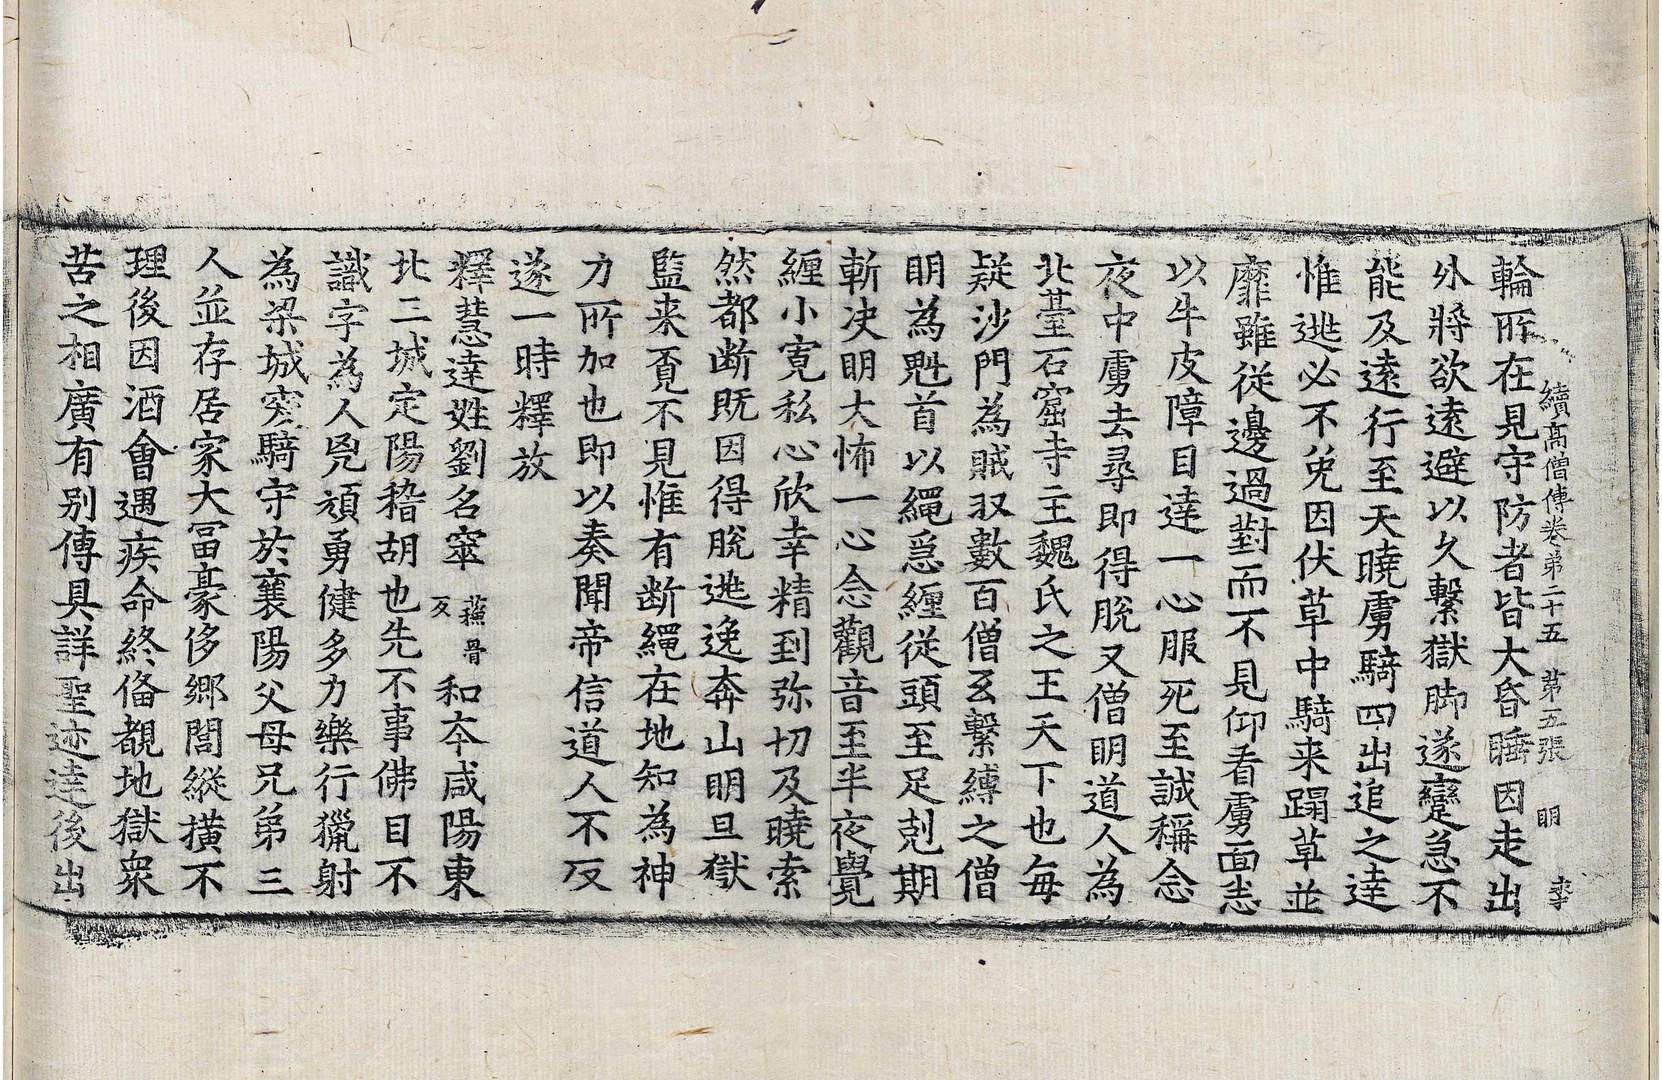 續高僧傳卷第二十五　第五張　明　李
輪所在見守防者皆大昏睡因走出
外將欲遠避以久繫獄脚遂㢽急不
能及遠行至天曉虜騎四出追之達
惟逃必不免因伏草中騎来蹋草並
靡雖從邊過對而不見仰看虜面悉
以牛皮障目達一心服死至誠稱念
夜中虜去尋即得脫又僧明道人為
北䑓石窟寺主魏氏之王天下也每
疑沙門為賊収數百僧互繫縛之僧
明為魁首以繩急纏從頭至足剋期
斬决明大怖一心念觀音至半夜覺
纏小寛私心欣幸精到弥切及曉索
然都断既因得脫逃逸奔山明旦獄
監来覔不見惟有断繩在地知為神
力所加也即以奏聞帝信道人不反
遂一時釋放
釋慧達姓劉名窣蘓骨反和夲咸陽東
北三城定陽稽胡也先不事佛目不
識字為人凶頑勇健多力樂行獵射
為梁城突騎守於襄陽父母兄弟三
人並存居家大冨豪侈鄉閭縱横不
理後因酒會遇疾命終俻覩地獄衆
苦之相廣有别傳具詳聖迹達後出